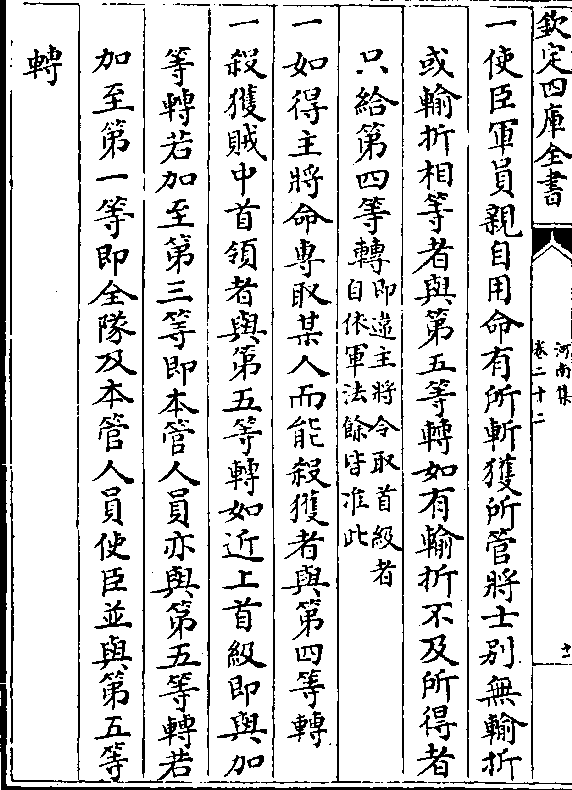 欽定四庫全書
河南集
卷二十二
十一
一使臣軍員親自用命有所斬獲所管將士別無輸折
或輸折相等者與第五等轉如有輸折不及所得者
只給第四等轉即違主將令取首級者
自依軍法餘皆准此
一如得主將命專取某人而能殺獲者與第四等轉
一殺獲賊中首領者與第五等轉如近上首級即與加
等轉若加至第三等即本管人員亦與第五等轉若
加至第一等即全隊及本管人員使臣並與第五等
轉